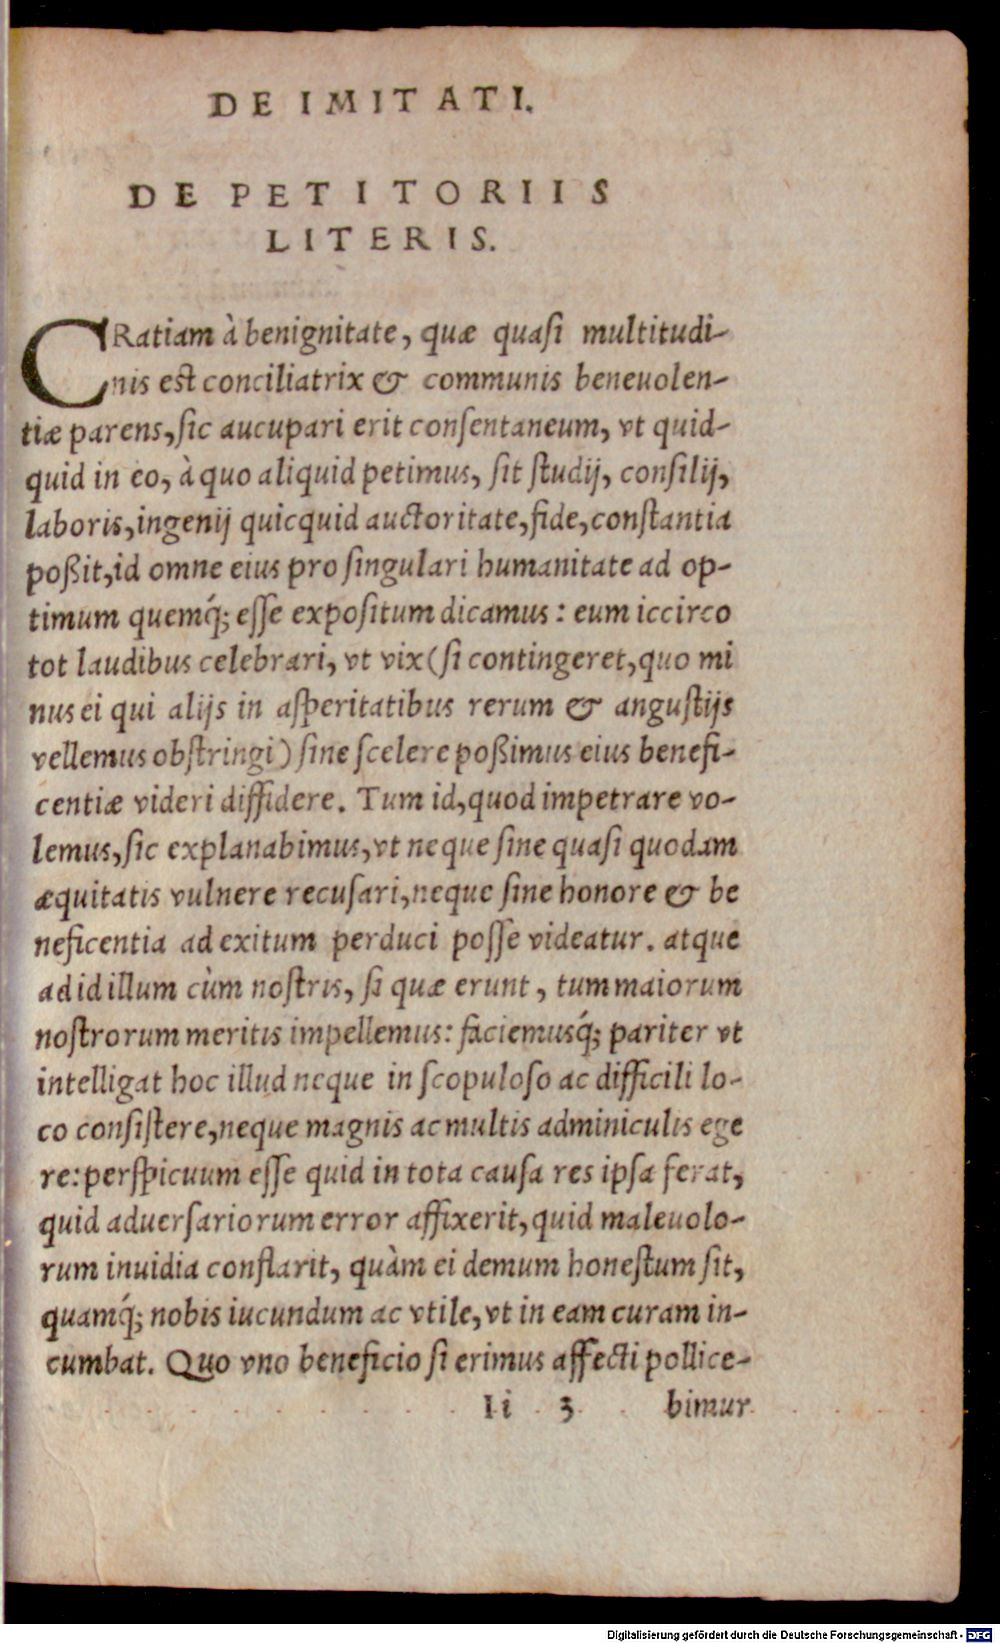 DE IMITATI.
DE PETITORIIS
LITERIS.
CRatiam à benignitate, quæ quasi multitudi-
nis est conciliatrix & communis beneuolen-
tiæ parens, sic aucupari erit consentaneum, vt quid-
quid in eo, à quo aliquid petimus, sit studij, consilij,
laboris, ingenij quicquid auctoritate, fide, constantia
poßit, id omne eius pro singulari humanitate ad op-
timum quemq́; esse expositum dicamus: eum iccirco
tot laudibus celebrari, vt vix (si contingeret, quo mi
nus ei qui alijs in asperitatibus rerum & angustijs
vellemus obstringi) sine scelere poßimus eius benefi-
centiæ videri diffidere. Tum id, quod impetrare vo-
lemus, sic explanabimus, vt neque sine quasi quodam
æquitatis vulnere recusari, neque sine honore & be
neficentia ad exitum perduci posse videatur. atque
ad id illum cùm nostris, si quæ erunt, tum maiorum
nostrorum meritis impellemus: faciemusq́; pariter vt
intelligat hoc illud neque in scopuloso ac difficili lo-
co consistere, neque magnis ac multis adminiculis ege
re: perspicuum esse quid in tota causa res ipsa ferat,
quid aduersariorum error affixerit, quid maleuolo-
rum inuidia conflarit, quàm ei demum honestum sit,
quamq́; nobis iucundum ac vtile, vt in eam curam in-
cumbat. Quo vno beneficio si erimus affecti pollice-
Ii 3 bimur
Digitalisierung gefördert durch die Deutsche Forschungsgemeinschaft - DFG